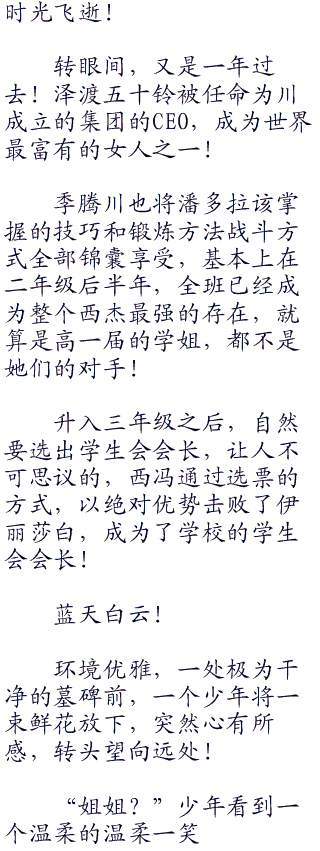 时光飞逝！
转眼间，又是一年过
去！泽渡五十铃被任命为川
成立的集团的CEO，成为世界
最富有的女人之一！
季腾川也将潘多拉该掌
握的技巧和锻炼方法战斗方
式全部锦囊享受，基本上在
二年级后半年，全班已经成
为整个西杰最强的存在，就
算是高一届的学姐，都不是
她们的对手！
升入三年级之后，自然
要选出学生会会长，让人不
可思议的，西冯通过选票的
方式，以绝对优势击败了伊
丽莎白，成为了学校的学生
会会长！
蓝天白云！
环境优雅，一处极为干
净的墓碑前，一个少年将一
束鲜花放下，突然心有所
感，转头望向远处！
“姐姐？”少年看到一
个温柔的温柔一笑